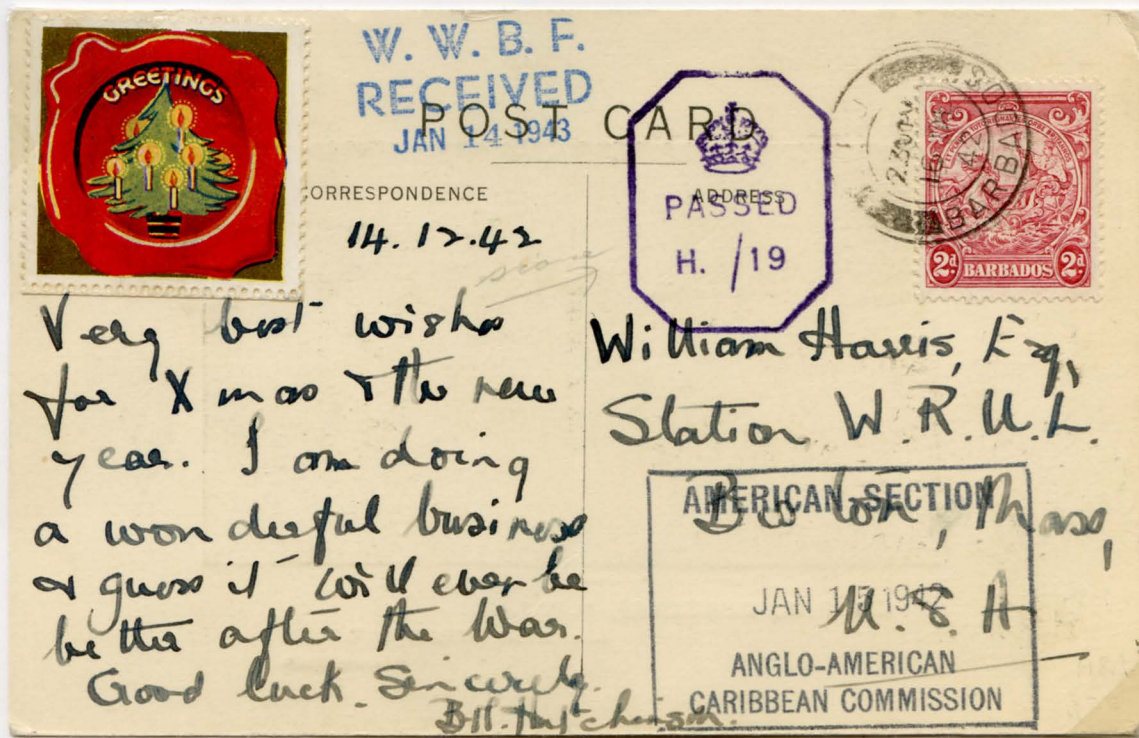 GREETINGS
W. W. B. F.
RECEIVED
JAN 14 1943
POST CARD
CORRESPONDENCE
ADDRESS
PASSED
H. /19
2.30 PM
16
42
BARBA
2d BARBADOS 2d
14.12.42
Very best wishes
for Xmas & the new
year. I am doing
a wonderful business
& guess it will ever be
better after the War.
Good luck. Sincerely.
B.H. Hutchinson.
William Harris, Esq,
Station W.R.U.L.
Boston, Mass,
U.S.A
AMERICAN SECTION
JAN 15 1943
ANGLO-AMERICAN
CARIBBEAN COMMISSION